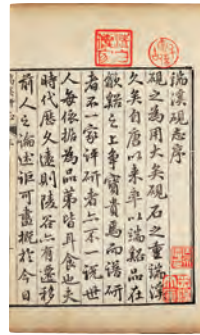 端溪硯志序
硯之為用大矣硯石之重端溪
久矣自唐以來率以端谿品在
歙谿之上寶貴焉而譜研
者不一家評研者亦不一說世
人每依據為品第皆耳食也夫
時代歷久遠則陵谷亦有遷移
前人之論述詎可盡擬於今日